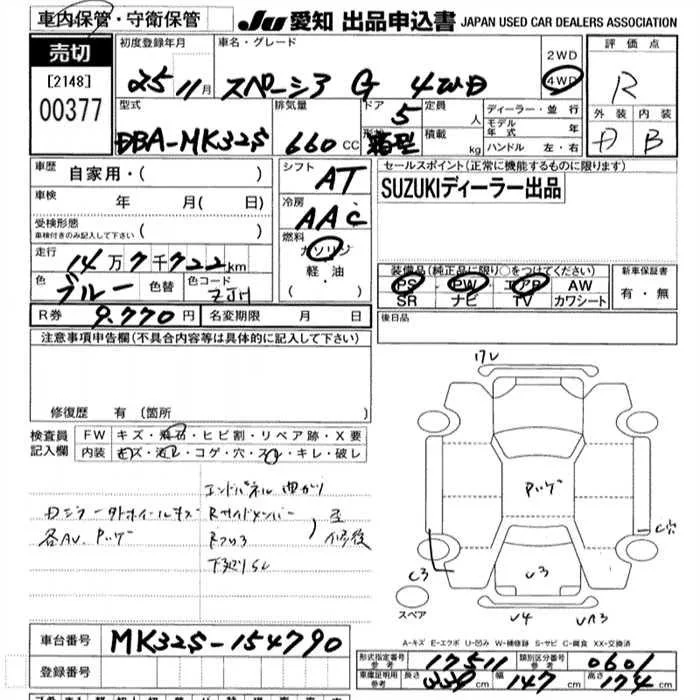 車内保管・守衛保管
JU 愛知 出品申込書 JAPAN USED CAR DEALERS ASSOCIATION
売切
[2148]
00377
初度登録年月 車名・グレード
25 11月 スペーシア G 4WD
2WD
4WD
評価点
R
外装 内装
D B
型式 排気量 ドア 定員 ディーラー・並行
DBA-MK32S 660cc 5 人
形状 箱型 積載 kg
モデル年式 年
ハンドル 左・右
車歴 自家用・( )
車検 年 月( 日)
受検形態
車検付きのみ記入して下さい
走行 14万7千722km
色 ブルー 色替 色コード ZJH
シフト AT
冷房 AAC
燃料 ガソリン
軽・油
( ・ )
セールスポイント(正常に機能するものに限ります)
SUZUKIディーラー出品
装備品(純正品に限り○をつけてください)
PS PW エアB AW
SR ナビ TV カワシート
新車保証書
有・無
R券 9.770円 名変期限 月 日
後日品
注意事項申告欄(不具合内容等は具体的に記入して下さい)
修復歴 有(箇所
検査員記入欄
FW キズ・飛石・ヒビ割・リペア跡・X要
内装 キズ・汚レ・コゲ・穴・スレ・キレ・破レ
エンドパネル曲がり
Rサイドメンバー
Rフロア
修復
17V
C穴
C3
U3
U4
UA3
スペア
A-キズ E-エクボ U-凹み W-補修跡 S-サビ C-腐食 XX-交換済
車台番号 MK32S-154790
登録番号
形式指定番号 参考 17511 類別区分番号 参考 0601
車庫証明用 参考 長さ 339cm 幅 147cm 高さ 174cm